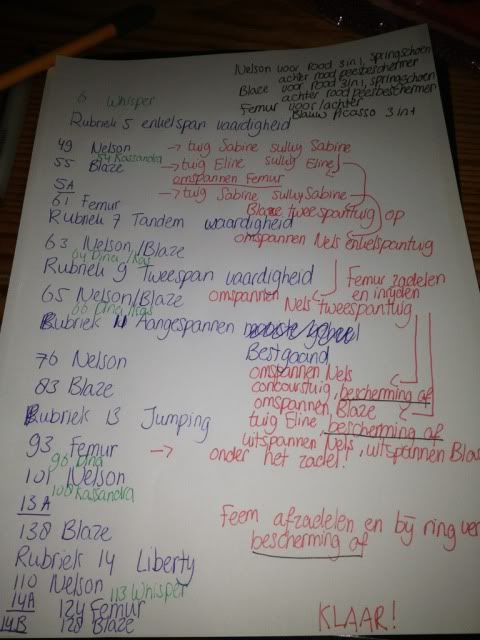 Nelson voor rood 3in1, springschoen
achter rood peesbeschermer
Blaze voor rood 3in1, springschoen
achter rood peesbeschermer
Femur voor/achter
Blauw Picasso 3in1
6 Whisper
Rubriek 5 enkelspan vaardigheid
49 Nelson → tuig Sabine sulky Sabine
54 Kassandra
55 Blaze → tuig Eline sulky Eline
omspannen Femur
5A → tuig Sabine sulky Sabine
61 Femur Blaze tweespantuig op
Rubriek 7 Tandem vaardigheid
63 Nelson/Blaze omspannen Nels enkelspantuig
64 Dina
Rubriek 9 Tweespan vaardigheid
Femur zadelen
en inrijden
65 Nelson/Blaze omspannen
Nels tweespantuig
66 Dina
Rubriek 11 Aangespannen
Bestgaand
76 Nelson omspannen Nels
concourstuig, bescherming af
83 Blaze omspannen Blaze
tuig Eline, bescherming af
Rubriek 13 Jumping
uitspannen Nels, uitspannen Blas
93 Femur → onder het zadel!
96 Dina
101 Nelson
108 Kassandra
13A
138 Blaze
Feem afzadelen en bij ring ver
bescherming af
Rubriek 14 Liberty
110 Nelson
113 Whisper
14A 124 Femur
14B 128 Blaze
KLAAR!